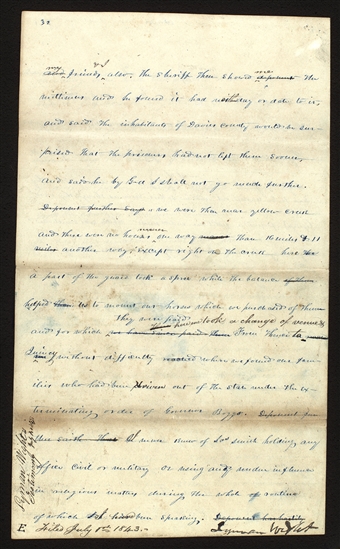 3x
my friends, also, the Sheriff then showed me deponent the
mittimus and he found it had neither day or date to it,
and said the inhabitants of Davies county would be sur-
prised that the prisoners had not left them sooner,
and said he by God I shall not go much further.
Deponent further says we were then near yellow creek
and there were no houses one way than 16 miles & 11
miles another way; except right on the creek here
a part of the guard took a spree while the balance
helped them us to mount our horses which we purchased of them
and for which they were paid we have never paid them
Here we took a change of venue &
Quincy without difficulty where we found our fam-
ilies who had been driven out of the State under the ex-
terminating order of Governor Boggs. Deponent fur-
ther saith that I never knew of Jos Smith holding any
office civil or military or using any undue influence
in religious matters during the whole of routine
of which I have been speaking. Deponent
Lyman Wight
Lyman Wights
testimony before
E Filed July 1st 1843.